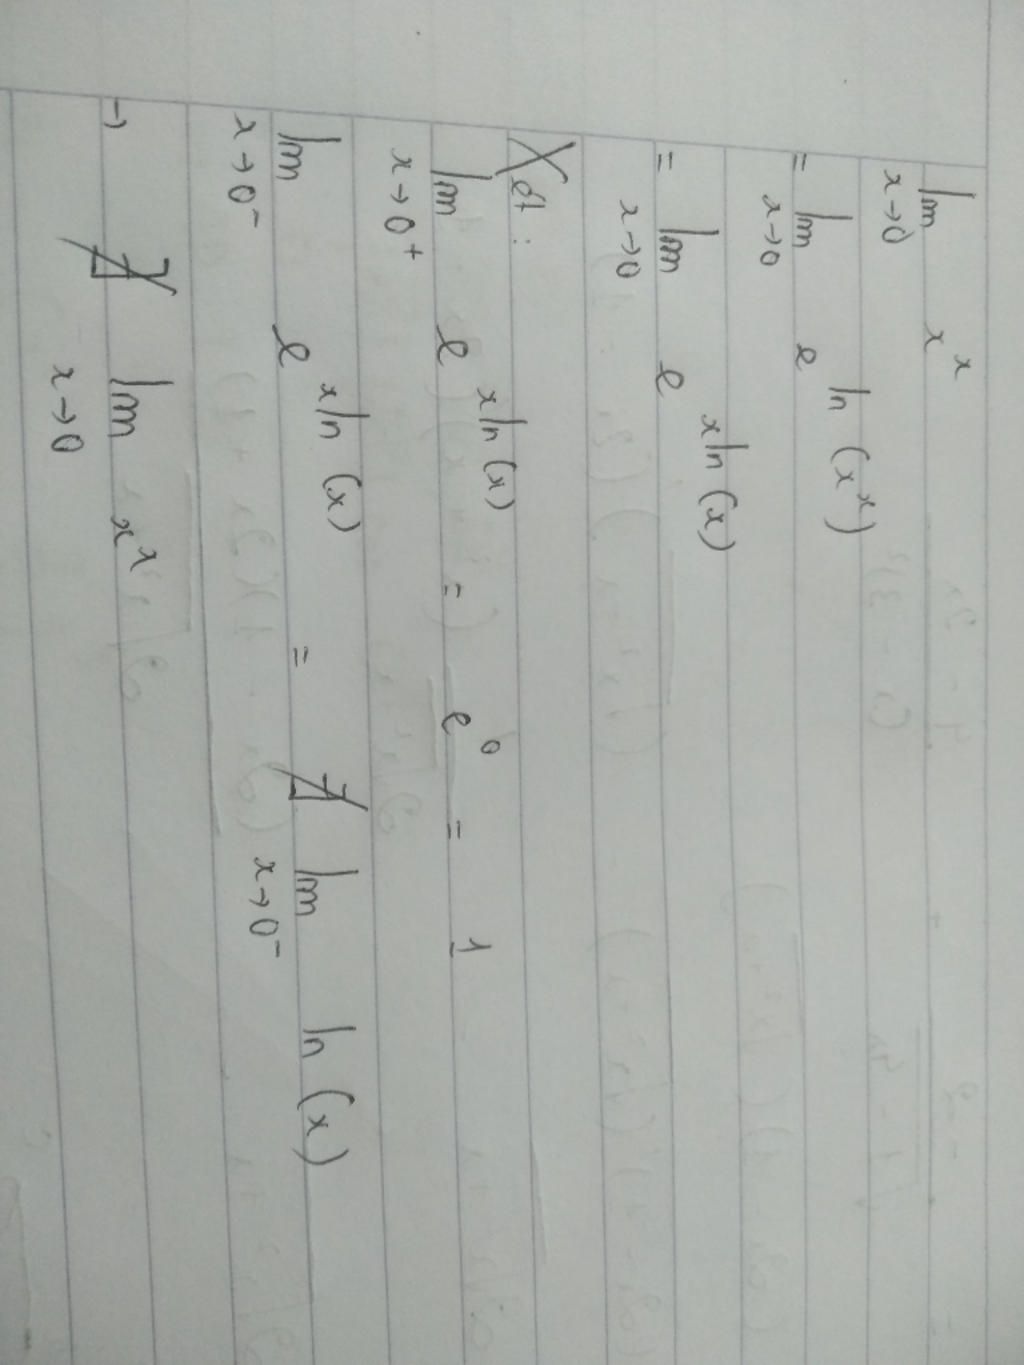 lim x→0 x^x
= lim x→0 e^ln(x^x)
= lim x→0 e^xln(x)
Xét:
lim x→0⁺ e^xln(x) = e^0 = 1
lim x→0⁻ e^xln(x) = ∄ lim x→0⁻ ln(x)
→ ∄ lim x→0 x^x